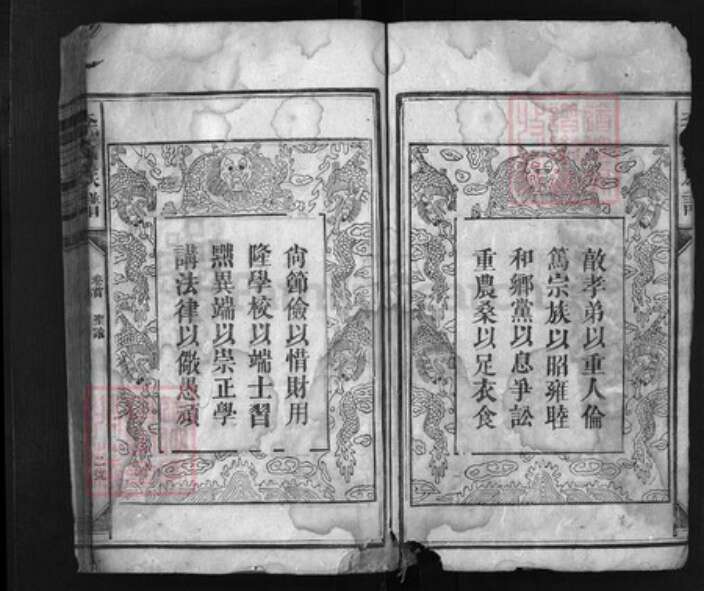 敦孝弟以重人倫
篤宗族以昭雍睦
和鄉黨以息爭訟
重農桑以足衣食
尚節儉以惜財用
隆學校以端士習
黜異端以崇正學
講法律以儆愚頑
卷首
聖諭